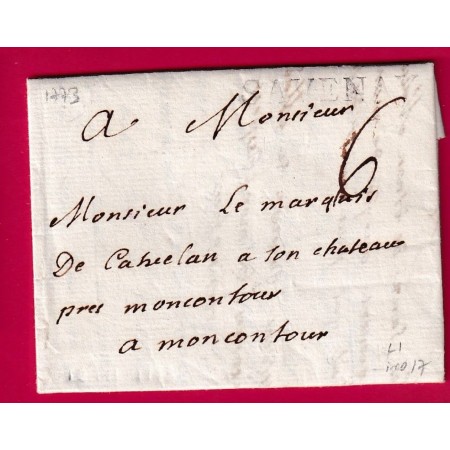 1773
SAVENA
a Monsieur
6
Monsieur Le marquis
De Catuelan a son chateau
pres moncontour
a moncontour
L1
ind 17